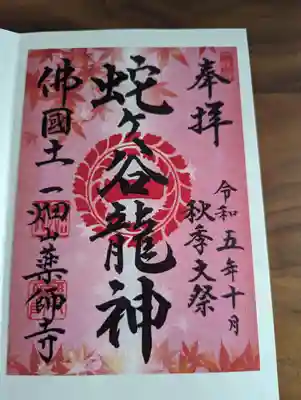 奉拝
令和五年十月
秋季大祭
蛇ヶ谷龍神
佛國土一畑山薬師寺